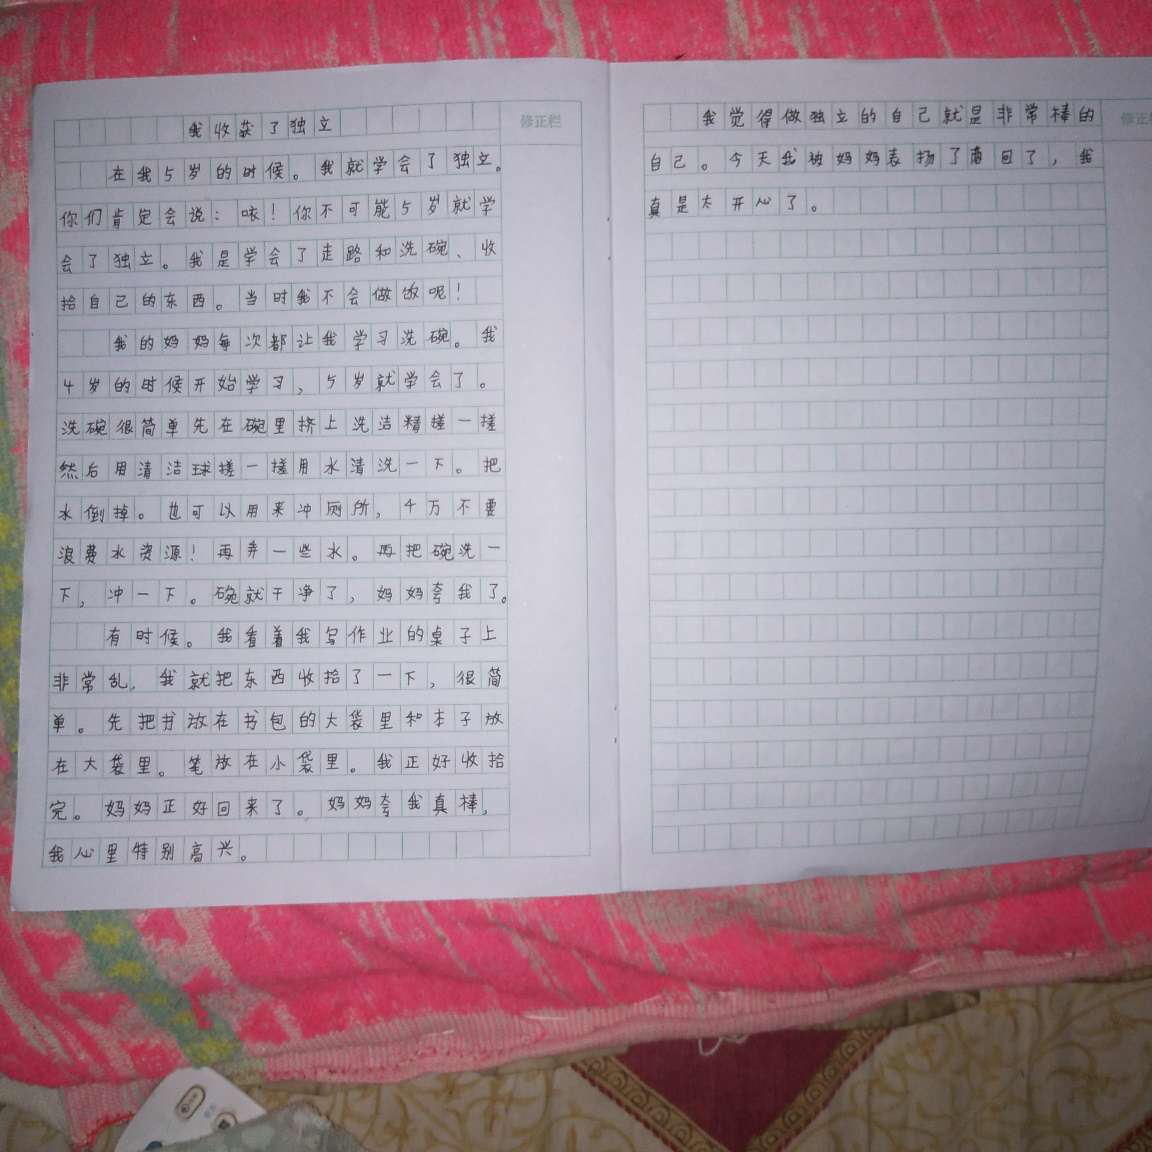 我收获了独立
修正栏
在我5岁的时候。我就学会了独立。
你们肯定会说：咳！你不可能5岁就学
会了独立。我是学会了走路和洗碗、收
拾自己的东西。当时我不会做饭呢！
我的妈妈每次都让我学习洗碗。我
4岁的时候开始学习，5岁就学会了。
洗碗很简单先在碗里挤上洗洁精搓一搓
然后用清洁球搓一搓用水清洗一下。把
水倒掉。也可以用来冲厕所，千万不要
浪费水资源！再弄一些水。再把碗洗一
下，冲一下。碗就干净了，妈妈夸我了。
有时候。我看着我写作业的桌子上
非常乱，我就把东西收拾了一下，很简
单。先把书放在书包的大袋里和本子放
在大袋里。笔放在小袋里。我正好收拾
完。妈妈正好回来了。妈妈夸我真棒，
我心里特别高兴。
我觉得做独立的自己就是非常棒的
自己。今天我被妈妈表扬了两回了，我
真是太开心了。
修正